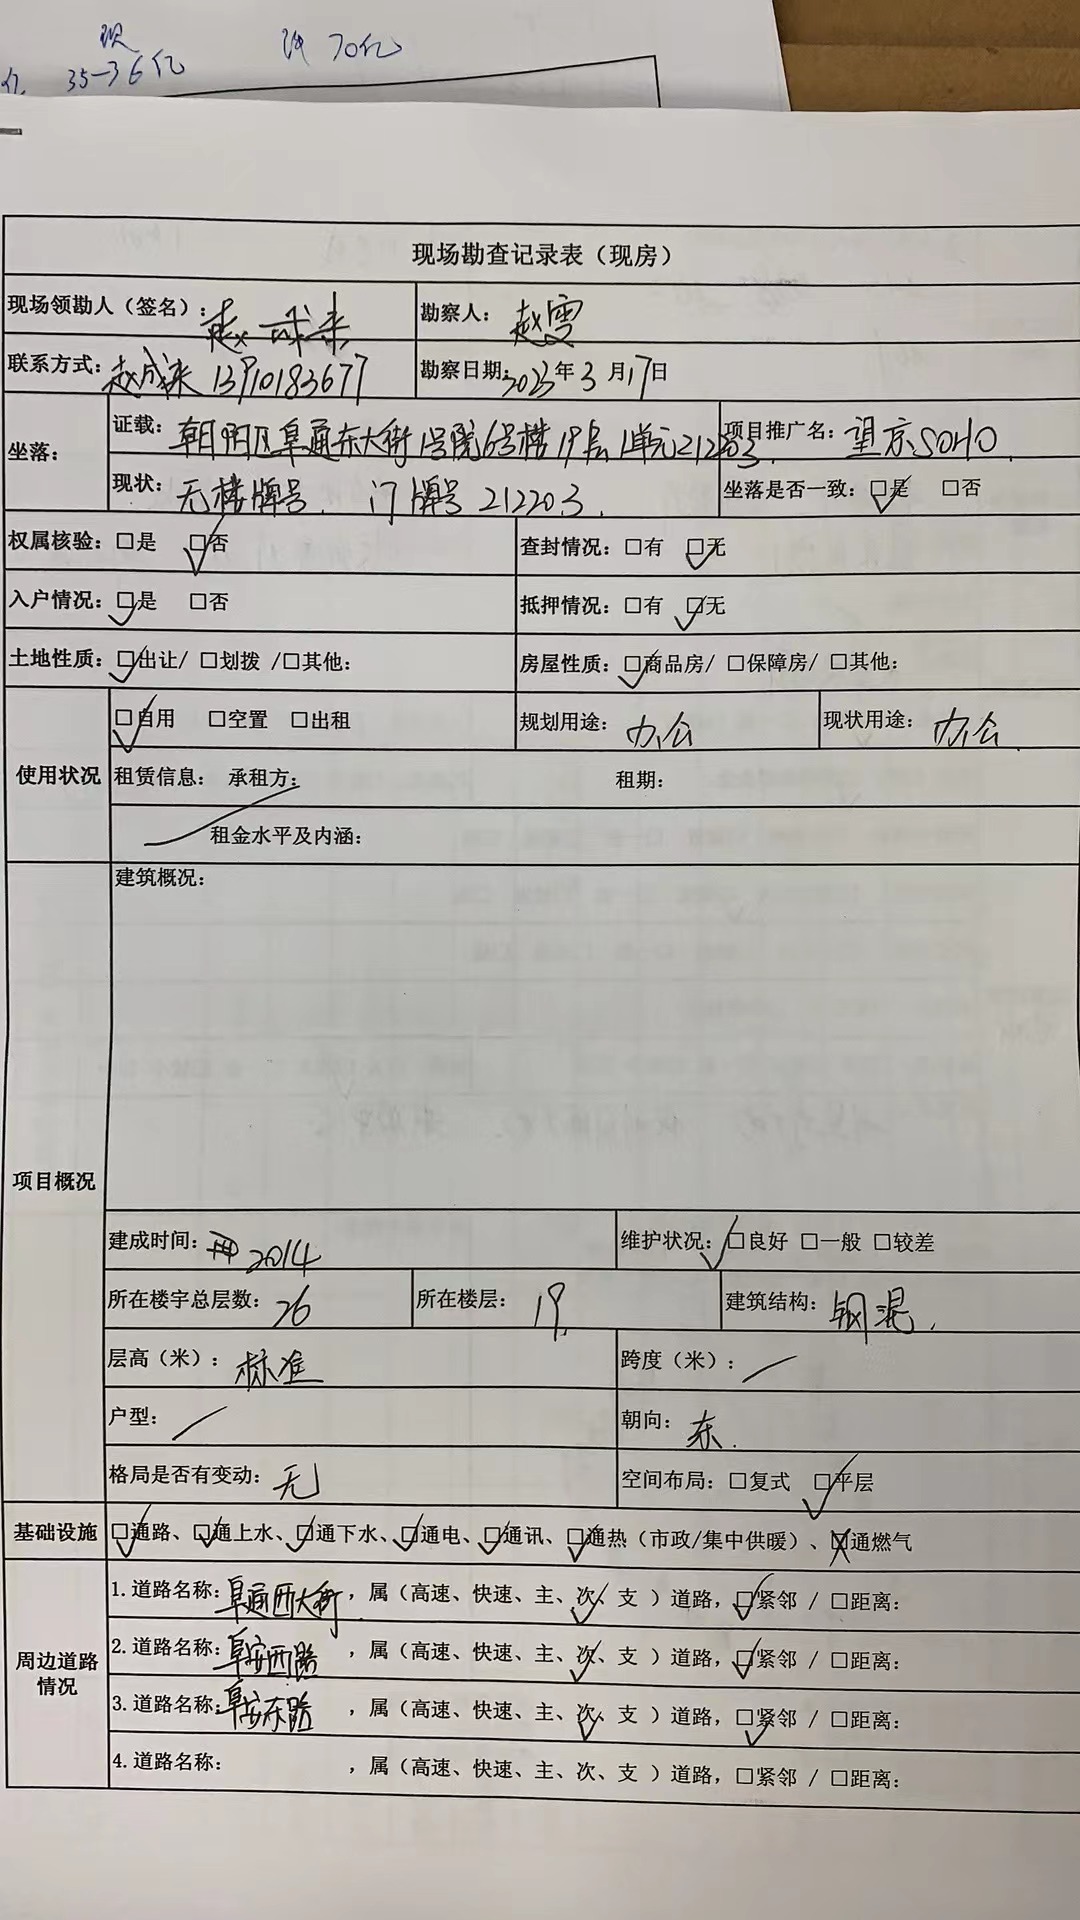 现
35-36亿
70亿
现场勘查记录表（现房）
现场领勘人（签名）：赵成来
勘察人：赵雯
联系方式：赵成来 13910183677
勘察日期：2023年3月17日
坐落：
证载：朝阳区阜通东大街1号院6号楼19层1单元212203
项目推广名：望京SOHO.
现状：无楼牌号、门牌号212203.
坐落是否一致：☑是 □否
权属核验：□是 ☑否
查封情况：□有 ☑无
入户情况：☑是 □否
抵押情况：□有 ☑无
土地性质：☑出让/ □划拨 /□其他：
房屋性质：☑商品房/ □保障房/ □其他：
使用状况
☑自用 □空置 □出租
规划用途：办公
现状用途：办公.
租赁信息： 承租方： 租期：
租金水平及内涵：
项目概况
建筑概况：
建成时间：2014
维护状况：☑良好 □一般 □较差
所在楼宇总层数：26
所在楼层：19.
建筑结构：钢混.
层高（米）：标准
跨度（米）：/
户型：/
朝向：东.
格局是否有变动：无
空间布局：□复式 ☑平层
基础设施
☑通路、☑通上水、☑通下水、☑通电、☑通讯、☑通热（市政/集中供暖）、☒通燃气
周边道路情况
1.道路名称：阜通西大街，属（高速、快速、主、次✓、支 ）道路，☑紧邻 / □距离：
2.道路名称：阜安西路，属（高速、快速、主、次✓、支 ）道路，☑紧邻 / □距离：
3.道路名称：阜安东路，属（高速、快速、主、次✓、支 ）道路，☑紧邻 / □距离：
4.道路名称： ，属（高速、快速、主、次、支 ）道路，□紧邻 / □距离：